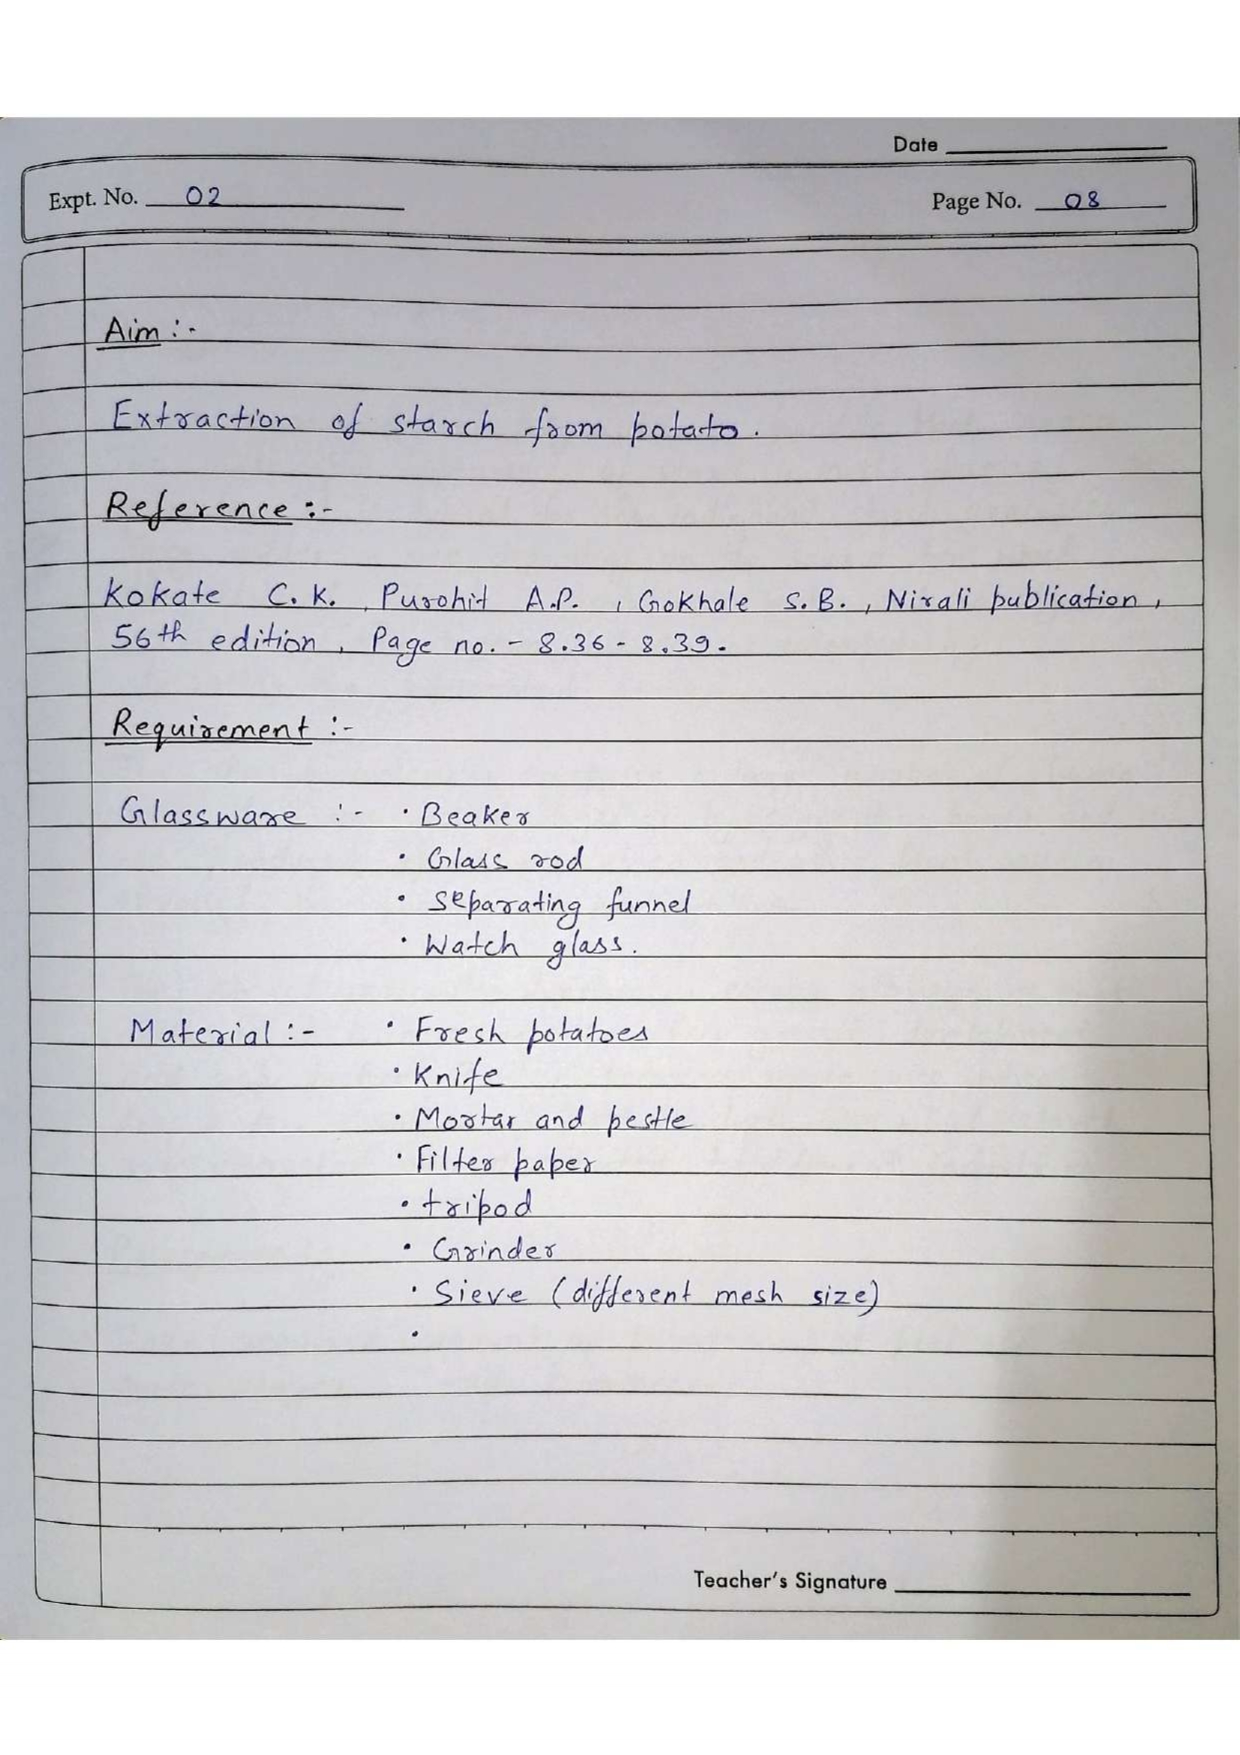 Date
Expt. No. 02
Page No. 08
Aim :-
Extraction of starch from potato.
Reference :-
Kokate C. K. , Purohit A.P. , Gokhale S. B. , Nirali publication ,
56th edition , Page no. - 8.36 - 8.39.
Requirement :-
Glassware :- • Beaker
• Glass rod
• Separating funnel
• Watch glass.
Material :- • Fresh potatoes
• Knife
• Mortar and pestle
• Filter paper
• tripod
• Grinder
• Sieve (different mesh size)
•
Teacher's Signature